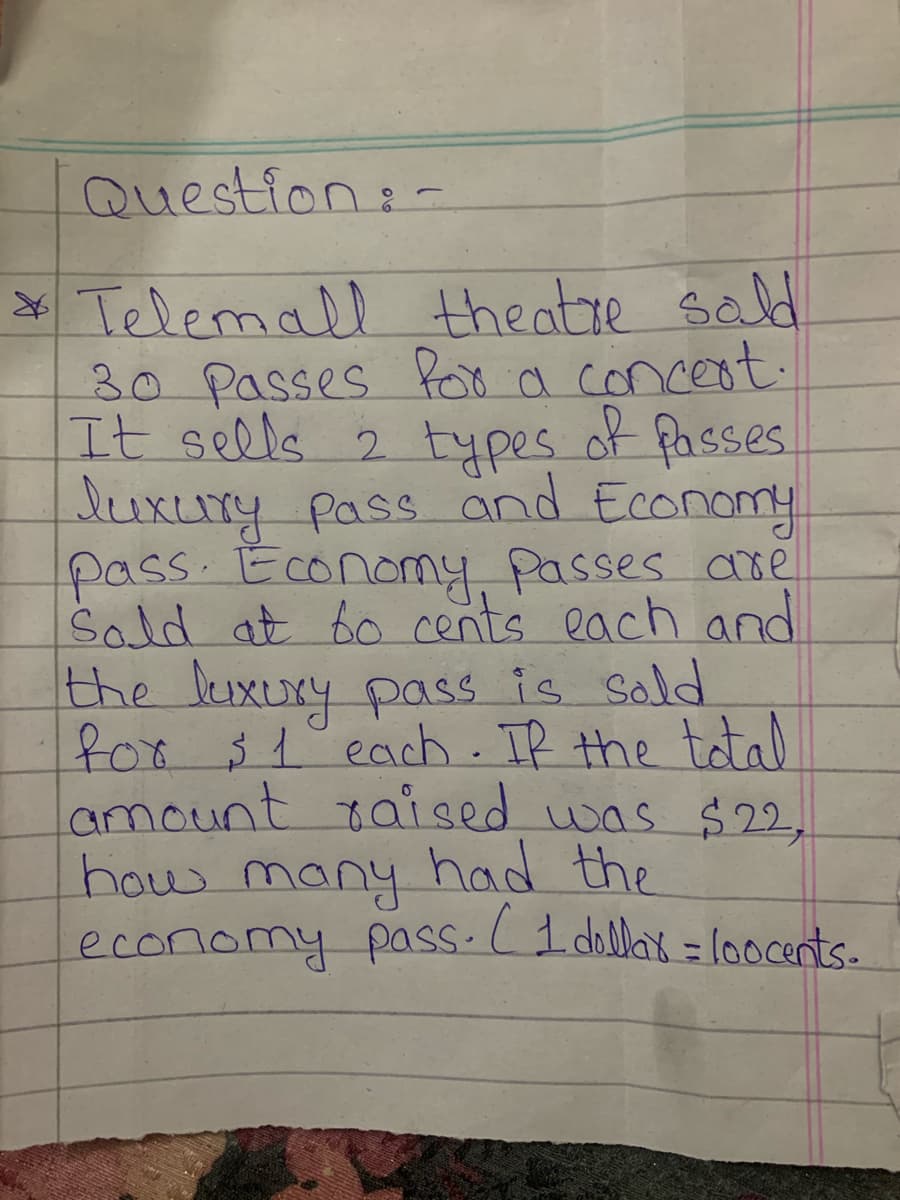 Question:-
* Telemall theatre sold
30 Passes for a concert.
It sells 2 types of Passes
luxury pass and Economy
pass. Economy Passes are
Sold at 60 cents each and
the luxury pass is sold
for $1 each. If the total
amount raised was $22,
how many had the
economy pass. (1 dollar = 100cents.